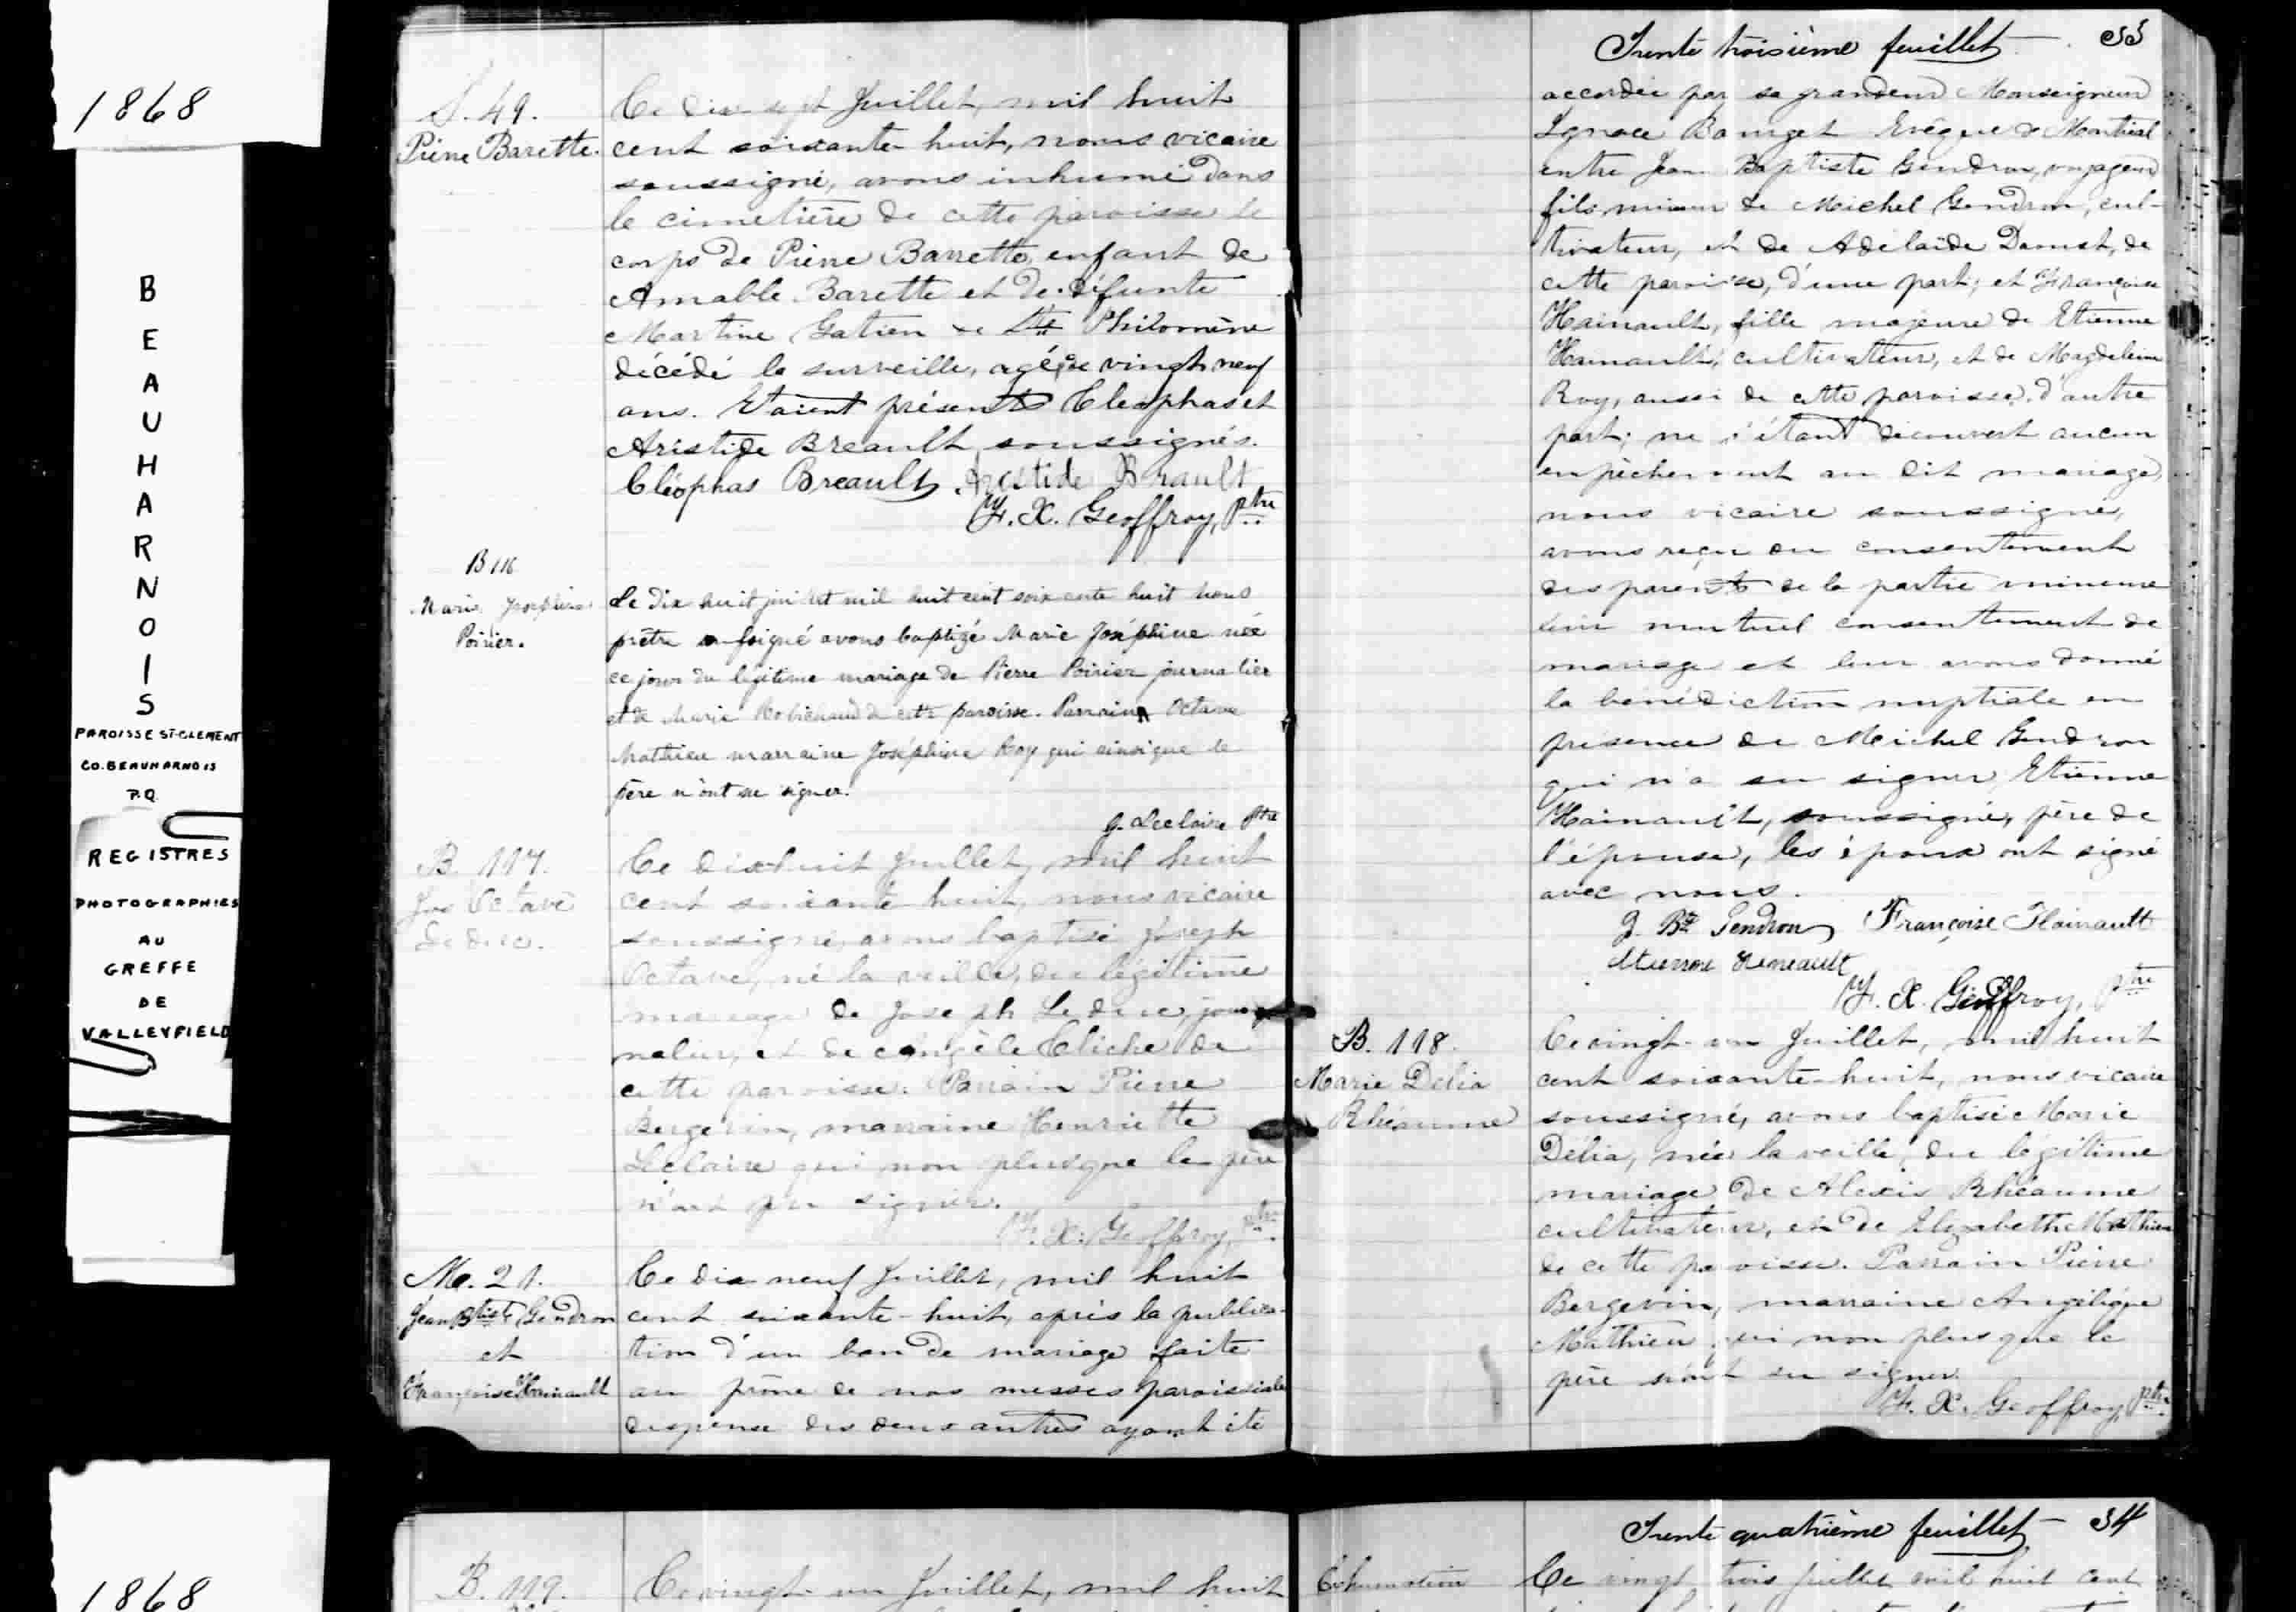 1868
BEAUHARNOIS
PAROISSE ST-CLEMENT
CO. BEAUHARNOIS
P.Q.
REGISTRES
PHOTOGRAPHIES
AU
GREFFE
DE
VALLEYFIELD
1868
S. 49.
Pierre Barette.
Ce dix sept Juillet, mil huit
cent soixante-huit, nous vicaire
soussigné, avons inhumé dans
le cimetière de cette paroisse le
corps de Pierre Barrette, enfant de
Amable Barette et de défunte
Martine Gatien de Ste Philomène
décédé la surveille, agé de vingt neuf
ans. Etaient présents Cléophas et
Aristide Breault soussignés.
Cléophas Breault Aristide Brault
F. X. Geoffroy, Ptre
B 116
Marie Josephine
Poirier.
Le dix huit juillet mil huit cent soixante huit nous
prêtre soussigné avons baptizé Marie Joséphine née
ce jour du légitime mariage de Pierre Poirier journalier
et de Marie Robichaud de cette paroisse. Parrain Octave
Mathieu marraine Joséphine Roy qui ainsi que le
père n'ont su signer.
Leclaire Ptre
B. 117.
Jos Octave
Leduc.
Ce dix-huit Juillet, mil huit
cent soixante huit, nous vicaire
soussigné, avons baptisé Joseph
Octave, né la veille, du légitime
mariage de Joseph Leduc, jour-
nalier, et de Cliche de
cette paroisse. Parrain Pierre
Bergevin, marraine Henriette
Leclaire qui non plus que le père
n'ont pu signer.
F. X. Geoffroy, Ptre
M. 21.
Jean Btiste Gendron
et
Françoise Hainault
Ce dix neuf Juillet, mil huit
cent soixante-huit, après la publica-
tion d'un ban de mariage faite
au prône de nos messes paroissiales
dispense des deux autres ayant été
Trente troisième feuillet 33
accordée par sa grandeur Monseigneur
Ignace Bourget Evêque de Montréal
entre Jean Baptiste Gendron, voyageur
fils mineur de Michel Gendron, cul-
tivateur, et de Adelaïde Daoust, de
cette paroisse, d'une part; et Françoise
Hainault, fille majeure de Etienne
Hainault, cultivateur, et de Magdeleine
Roy, aussi de cette paroisse, d'autre
part; ne s'étant découvert aucun
empêchement au dit mariage,
nous vicaire soussigné,
avons reçu du consentement
des parents de la partie mineure
leur mutuel consentement de
mariage et leur avons donné
la bénédiction nuptiale en
présence de Michel Gendron
qui n'a su signer, Etienne
Hainault, soussigné, père de
l'épouse, les époux ont signé
avec nous.
J. Bte Gendron Françoise Hainault
Etienne Heneault
F. X. Geoffroy, Ptre
B. 118.
Marie Delia
Rhéaume
Ce vingt-un Juillet, mil huit
cent soixante-huit, nous vicaire
soussigné, avons baptisé Marie
Délia, née la veille, du légitime
mariage de Alexis Rhéaume
cultivateur, et de Elizabeth Mathieu
de cette paroisse. Parrain Pierre
Bergevin, marraine Angélique
Mathieu qui non plus que le
père n'ont su signer.
F. X. Geoffroy, Ptre
B. 119.
Ce vingt-un Juillet, mil huit
Trente quatrième feuillet 34
Exhumation
Ce vingt trois juillet mil huit cent